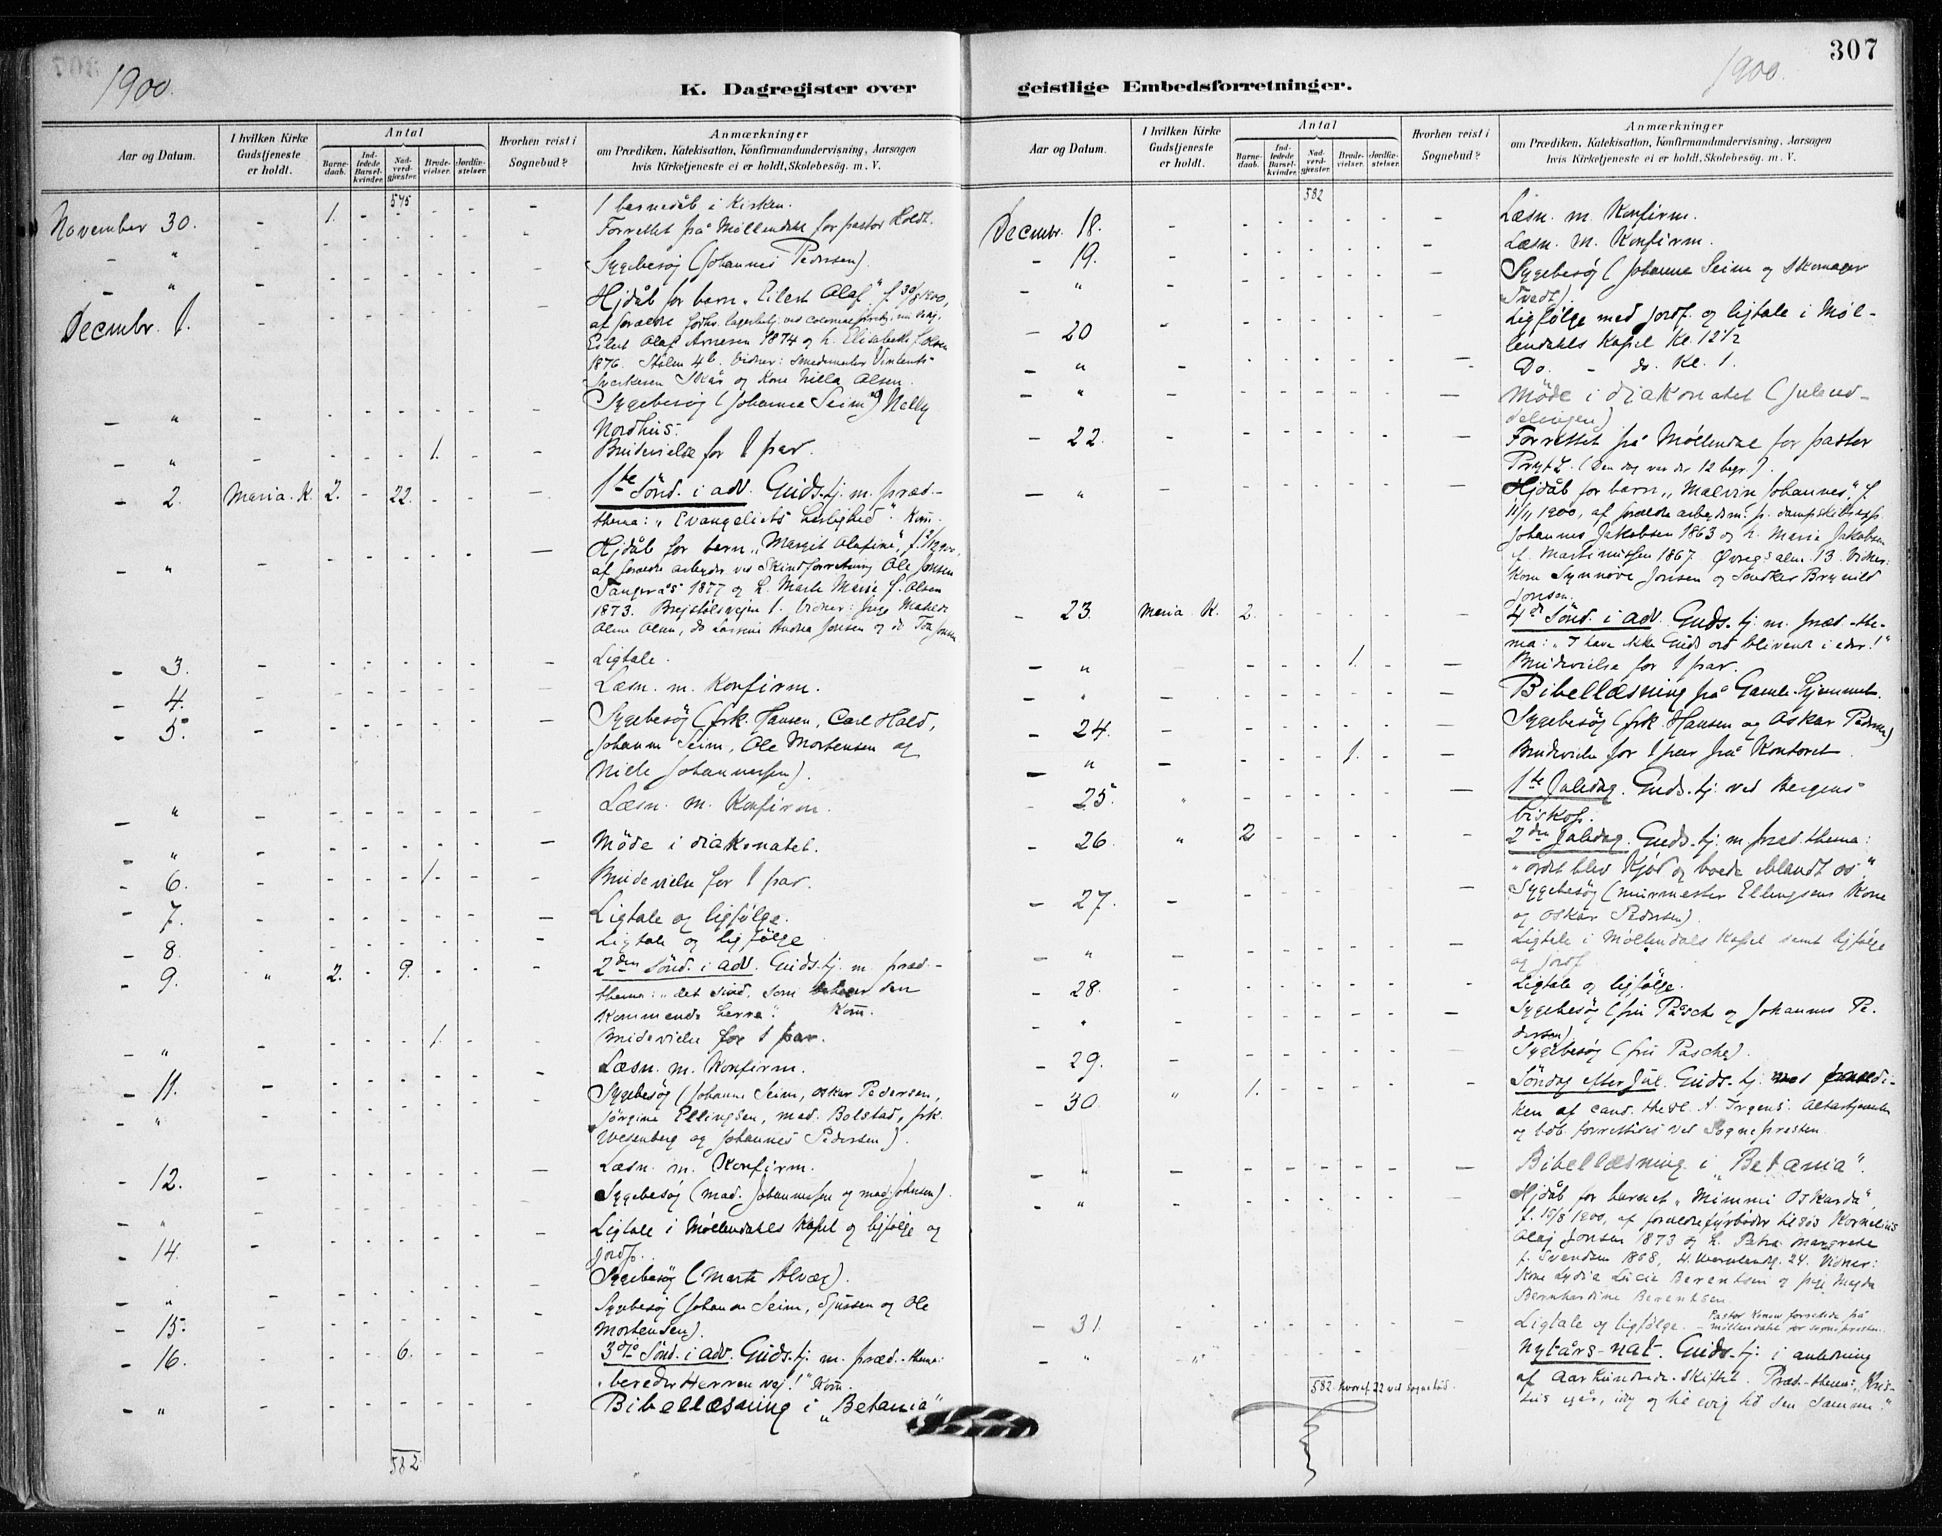 307
1900.
1900.
K. Dagregister over
geistlige Embedsforretninger.
Aar og Datum.
I hvilken Kirke Gudstjeneste er holdt.
Antal
Barnedaab.
Indledede Barselkvinder.
Nadverdgjæster.
Brudevielser.
Jordfæstelser.
Hvorhen reist i Sognebud?
Anmærkninger
om Prædiken, Katekisation, Konfirmandundervisning, Aarsagen
hvis Kirketjeneste ei er holdt, Skolebesøg. m. V.
575
November 30. - 1. - - - - - 1 barnedåb i Kirken.
- " Forrettet på Møllendal for pastor Holdt.
- " Sygebesøg (Johannes Pedersen).
Decembr. 1. Hjdåb for barn "Eilert Olaf" f. 30/8 1900,
Eilert Olaf Arnesen 1874 og h. Elisabeth f. Olsen
1876. Stølen 4b. Vidner:
og Kone Nilla Olsen.
- " Sygebesøg (Johanne Seim og Nelly
Nordhus.
- " 1. Brudevielse for 1 par.
- 2. Maria K. 2. - 22. 1ste Sønd. i adv. Guds.tj. m. præd.-
thema: "Evangeliets herlighed". Kom.
- " Hjdåb for barn "Margit Olafine",
af forældre arbeider ved Skindforretning Ole Jensen
1877 og h. Marte Marie f. Olsen
1873.
- 3. Ligtale.
- 4. Læsn. m. Konfirm.
- 5. Sygebesøg (frk. Hansen, Carl Hald,
Johanne Seim, Ole Mortensen og
Niels Johannessen).
- " Læsn. m. Konfirm.
- " Møde i diakonatet.
- 6. 1. Brudevielse for 1 par.
- 7. Ligtale og ligfølge.
- 8. Ligtale og ligfølge
- 9. " 2. - 9. 2den Sønd. i adv. Guds.tj. m. præd.-
thema: "det sind, som den
Kommende herre". Kom.
- " 1. Brudevielse for 1 par.
- 11. Læsn. m. Konfirm.
- " Sygebesøg (Johanne Seim, Oskar Pedersen,
Jørgine Ellingsen, mad. Bolstad, frk.
Wesenberg og Johannes Pedersen).
- 12. Læsn. m. Konfirm.
Sygebesøg (mad. Johannessen og mad. Johnsen).
- " Ligtale i Møllendahls Kapel og ligfølge og
- 14. jordf.
Sygebesøg (Marte Alvær).
- " Sygebesøg (Johanne Seim, Sjursen og Ole
- 15. Mortensen).
- 16. 6. 3die Sønd. i adv. Guds.tj. m. præd.-thema:
"bereder Herren vej!" Kom.
- " Bibellæsning i "Betania"
582
Aar og Datum.
I hvilken Kirke Gudstjeneste er holdt.
Antal
Barnedaab.
Indledede Barselkvinder.
Nadverdgjæster.
Brudevielser.
Jordfæstelser.
Hvorhen reist i Sognebud?
Anmærkninger
om Prædiken, Katekisation, Konfirmandundervisning, Aarsagen
hvis Kirketjeneste ei er holdt, Skolebesøg. m. V.
582
Decembr. 18. Læsn. m. Konfirm.
- 19. Læsn. m. Konfirm.
- " Sygebesøg (Johanne Seim og skomager
Tvedt).
- 20 Ligfølge med jordf. og ligtale i Møl-
lendahls Kapel Kl. 12 1/2
- " Do. - do. Kl. 1.
- " Møde i diakonatet (juleud-
delingen)
- 22. Forrettet på Møllendal for pastor
(Den dag var der 12 begr.).
- " Hjdåb for barn "Malvin Johannes", f.
11/11 1900, af forældre arbeidsm. p. dampskibsexp.
Johannes Jakobsen 1863 og h. Maria Jakobsen
f. Martinussen 1867. Øvregs.alm. 13. Vidner:
Kone Synnøve Jonsen og Snedker Brynild
Jonsen.
- 23. Maria K. 2. 4de Sønd. i adv. Guds.tj. m. præd.-the-
ma: "I have ikke Guds ord blivende i eder!"
- " 1. Brudevielse for 1 par.
- " Bibellæsning på Gamle-hjemmet.
- 24. Sygebesøg (frk. Hansen og Oskar Pedersen)
- " 1. Brudevielse for 1 par på Kontoret.
- 25. " 1ste Juledag. Guds.tj. ved Bergens
biskop.
- 26 " 2 2den Juledag. Guds.tj. m. præd.thema:
"ordet blev Kjød og boede iblandt os".
- 27. Sygebesøg (murmester Ellingsens Kone
og Oskar Pedersen).
- " Ligtale i Møllendals Kapel samt ligfølge
og jordf.
- 28. Ligtale og ligfølge.
- " Sygebesøg (fru Pasche og Johannes Pe-
dersen)
- 29. Sygebesøg (fru Pasche).
- 30. " 1. Søndag efter Jul. Guds.tj. med prædi-
ken af cand. theol. A. Irgens. Altertjenesten
og bdb. forrettedes ved Sognepresten.
- " Bibellæsning i "Betania".
- " Hjdåb for barnet "Mimmi Oskarda",
f. 15/8 1900, af forældre fyrbøder tilsøs Kornelius
Olaj Jonsen 1873 og h. Petra Margrete
f. Svendsen 1868, 24. Vidner:
Kone Lydia Lucie Berentsen og pige Magda
Bernhardine Berentsen.
- 31. Ligtale og ligfølge. - Pastor Konow forrettede på
møllendal for sognepresten.
- " " Nytårs-nat. Guds.tj. i anledning
af Aarhundrede-skiftet. Præd-thema: "Kris-
tus igår, idag og til evig tid den samme".
582. hvoraf 22 ved sognebud.